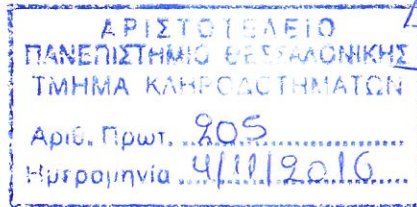 ΑΡΙΣΤΟΤΕΛΕΙΟ
ΠΑΝΕΠΙΣΤΗΜΙΟ ΘΕΣΣΑΛΟΝΙΚΗΣ
ΤΜΗΜΑ ΚΛΗΡΟΔΟΤΗΜΑΤΩΝ
Αριθ. Πρωτ. 205
Ημερομηνία 4/11/2016